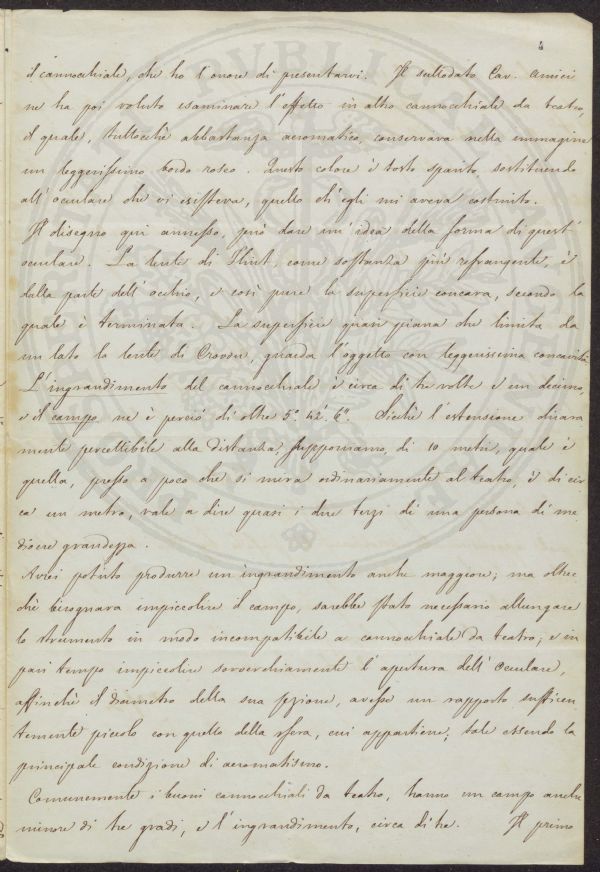 4
il cannocchiale, che ho l'onore di presentarvi. Il sullodato Cav. Amici
ne ha poi voluto esaminare l'effetto in altro cannocchiale da teatro,
il quale, tuttochè abbastanza acromatico, conservava nella immagine
un leggerissimo bordo roseo. Questo colore è tosto sparito, sostituendo
all'oculare che vi esisteva, quello ch'egli mi aveva costruito.
Il disegno qui annesso, può dare un'idea della forma di quest'
oculare. La lente di Flint, come sostanza più refrangente, è
dalla parte dell'occhio, e così pure la superficie concava, secondo la
quale è terminata. La superficie quasi piana che limita da
un lato la lente di Crovon, guarda l'oggetto con leggerissima concavità.
L'ingrandimento del cannocchiale è circa di tre volte e un decimo,
e il campo ne è perciò di oltre 5°. 42'. 6". Sicchè l'estensione chiara
mente percettibile alla distanza, supponiamo, di 10 metri, quale è
quella, presso a poco che si mira ordinariamente al teatro, è di cir
ca un metro, vale a dire quasi i due terzi di una persona di me
diocre grandezza.
Avrei potuto produrre un ingrandimento anche maggiore; ma oltre
chè bisognava impiccolire il campo, sarebbe stato necessario allungare
lo strumento in modo incompatibile a cannocchiale da teatro; e in
pari tempo impiccolire soverchiamente l'apertura dell'oculare,
affinchè il diametro della sua sezione, avesse un rapporto sufficien
temente piccolo con quello della sfera, cui appartiene; tale essendo la
principale condizione di acromatismo.
Comunemente i buoni cannocchiali da teatro, hanno un campo anche
minore di tre gradi, e l'ingrandimento, circa di tre. Il primo